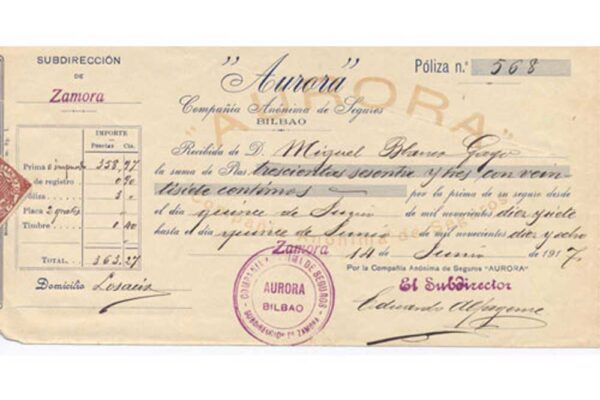 SUBDIRECCIÓN
DE
Zamora
IMPORTE
Pesetas Cts.
Prima 358,97
de registro 0,90
Póliza 3
Placa 2 gratis
Timbre 0,40
TOTAL. . . 363,27
Domicilio Losacio
"Aurora" Póliza n.º 568
Compañía Anónima de Seguros
BILBAO
"AURORA"
Compañía Anónima de Seguros
Recibida de D. Miguel Blanco Gago
la suma de Ptas. trescientas sesenta y tres con vein-
tisiete centimos por la prima de su seguro desde
el día quince de Junio de mil novecientos diez y siete
hasta el día quince de Junio de mil novecientos diez y ocho
Zamora 14 de Junio de 1917
Por la Compañía Anónima de Seguros "AURORA"
El Subdirector
Eduardo
COMPAÑIA ANONIMA DE SEGUROS
AURORA
BILBAO
SUBDIRECCION DE ZAMORA